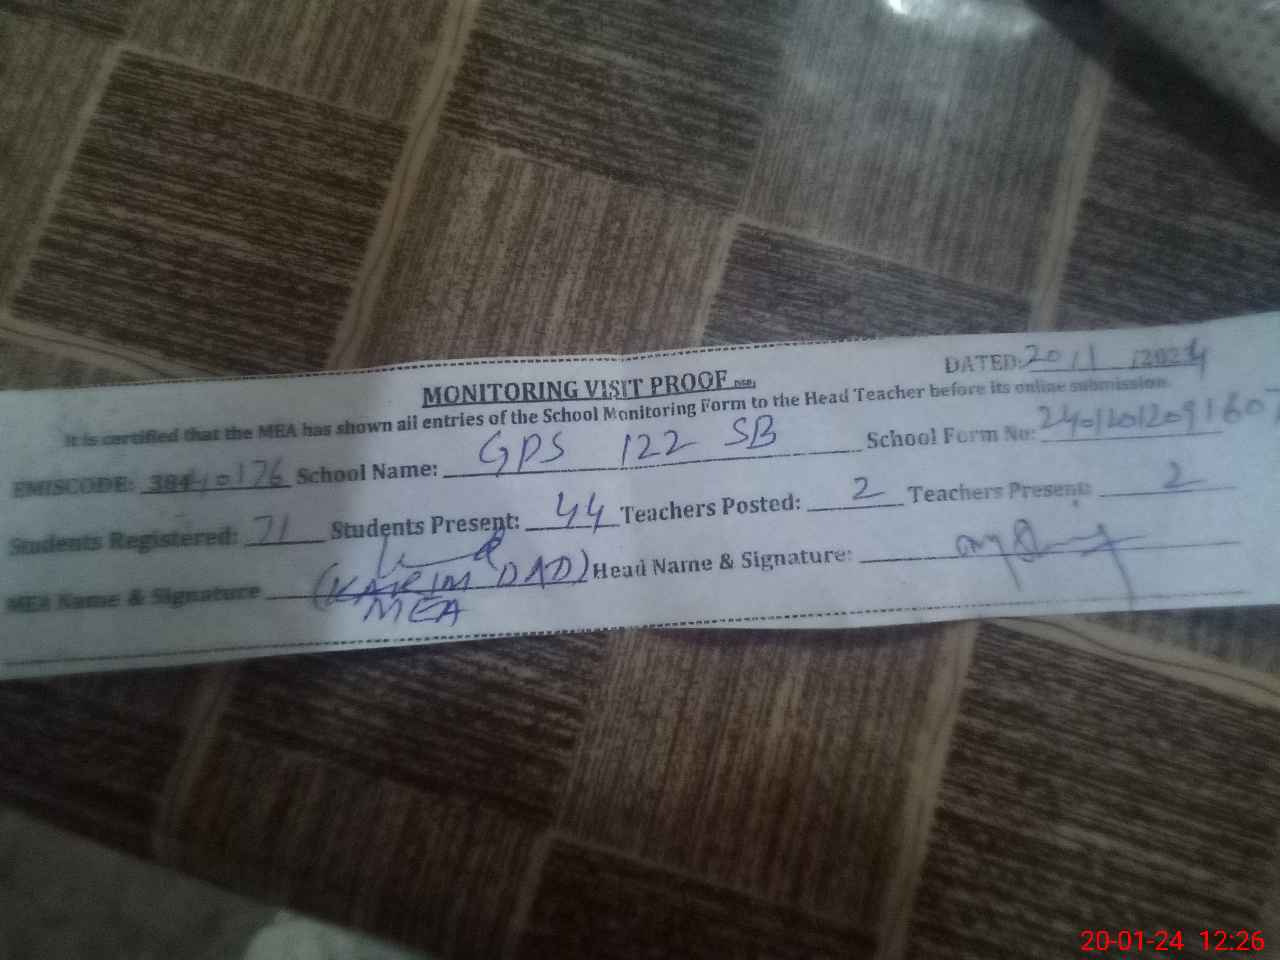 DATED: 20/1/2024
MONITORING VISIT PROOF
It is certified that the MEA has shown all entries of the School Monitoring Form to the Head Teacher before its online submission.
EMISCODE: 38410176 School Name: GPS 122 SB School Form No:
Students Registered: 71 Students Present: 44 Teachers Posted: 2 Teachers Present: 2
MEA Name & Signature (KARIM DAD) Head Name & Signature:
MEA
20-01-24 12:26